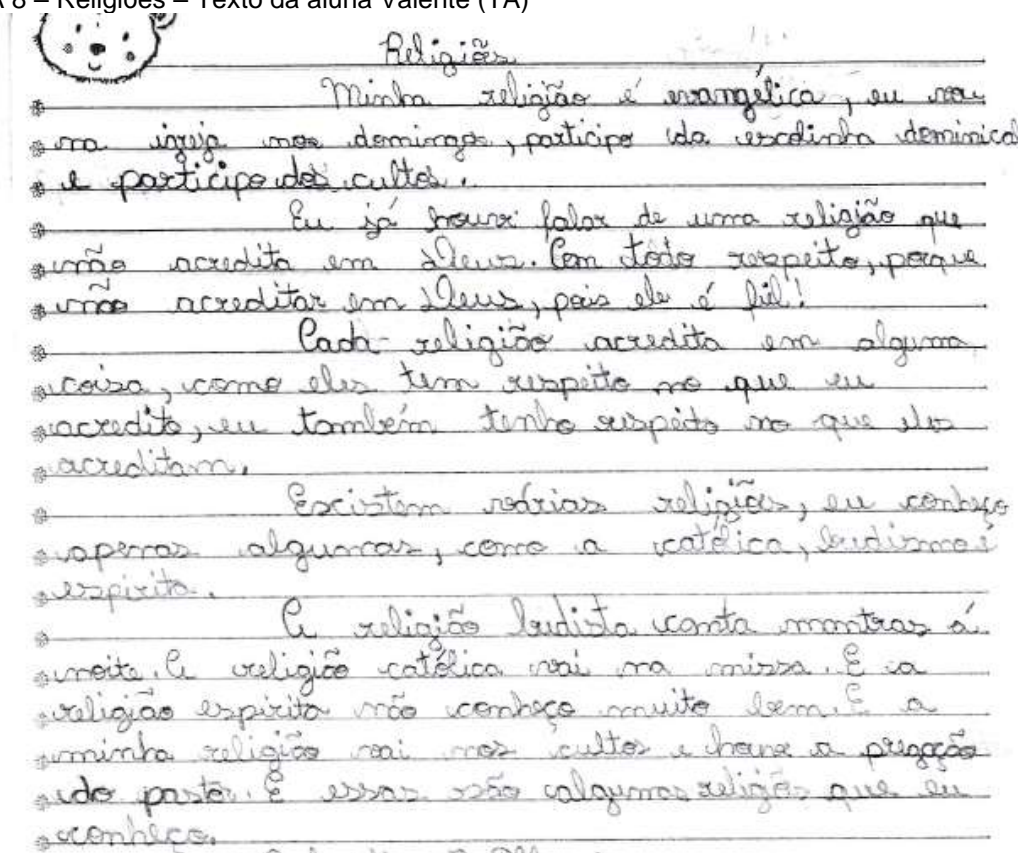 A 8 – Religiões – Texto da aluna Valente (TA)
Religiões
Minha religião é evangélica, eu vou
na igreja nos domingos, participo da escolinha dominical
e participo dos cultos.
Eu já houvi falar de uma religião que
não acredita em Deus. Com todo respeito, porque
não acreditar em Deus, pois ele é fiél!
Cada religião acredita em alguma
coisa, como eles tem respeito no que eu
acredito, eu também tenho respeito no que eles
acreditam.
Escistem várias religiões, eu conheço
apenas algumas, como a católica, budismo e
espirita.
A religião budista canta mantras á
noite. A religião católica vai na missa. E a
religião espirita não conheço muito bem. E a
minha religião vai nos cultos e houve a pregação
do pastor. E essas são algumas religiões que eu
conheço.